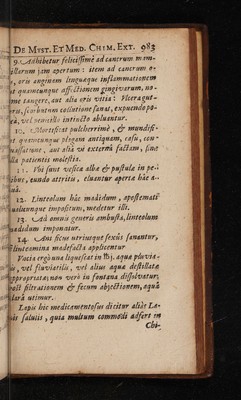 DE MYST. ET MED. CHIM. EXT. 983
9. Adhibetur felicissimè ad cancrum mem-
illarum jam apertum: item ad cancrum o-
, oris auginem linguæque inflammationem
quamcunque affectionem gingivarum, no-
me sangere, aut alia oris vitia: Ulceraque
oris, scorbutum collutione sanat,
ea, vel penicillo intincto abluantur.
10. Mortificat pulcherrimè, & mundifi-
quamcunque plagam antiquam, casu, con-
quassatione, aut alia vi externâ factam, sine
lla patientis molestia.
11. Ubi sunt vesicæ albæ & pustulæ in pe-
ibus, eundo attritis, eluantur aperta hâc a-
quâ.
12. Linteolum hâc madidum, apostemati
ualicunque impositum, medetur illi.
13. Ad omnis generis ambusta, linteolum
madidum imponatur.
14. Ani ficus utriusque sexûs sanantur,
linteamina madefacta applicentur
Potio ergò una liquescat in aquæ pluvia-
is, vel fluviatilis, vel alius aquæ destillatæ
appropriatæ; non verò in fontana dissolvatur,
filtrationem & fecum abjectionem, aquâ
lara utimur.
Lapis hic medicamentosus dicitur aliàs La-
is salutis, quia multum commodi adfert en
Chi-